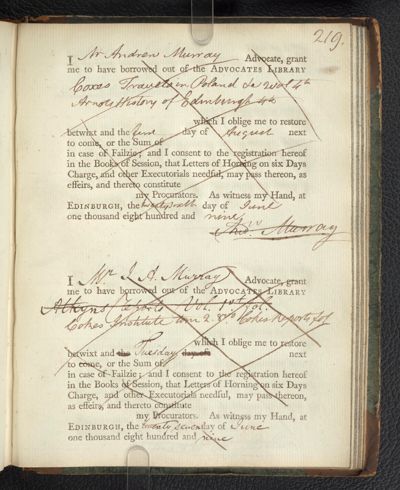 219.
I Mr Andrew Murray Advocate, grant
me to have borrowed out of the ADVOCATES LIBRARY
Coxes Travels in Poland &c Vol 4th
Arnots History of Edinburgh 4to
which I oblige me to restore
betwixt and the first day of August next
to come, or the Sum of
in case of Failzie; and I consent to the registration hereof
in the Books of Session, that Letters of Horning on six Days
Charge, and other Executorials needful, may pass thereon, as
effeirs, and thereto constitute
my Procurators. As witness my Hand, at
EDINBURGH, the day of June
one thousand eight hundred and nine
Andw Murray
I Mr J. A. Murray Advocate, grant
me to have borrowed out of the ADVOCATES LIBRARY
Atkyns Reports Vol. 1st fol.
Cokes Institute Cokes Reports fol
which I oblige me to restore
betwixt and the Tuesday day of next
to come, or the Sum of
in case of Failzie; and I consent to the registration hereof
in the Books of Session, that Letters of Horning on six Days
Charge, and other Executorials needful, may pass thereon,
as effeirs, and thereto constitute
my Procurators. As witness my Hand, at
EDINBURGH, the twenty seven day of June
one thousand eight hundred and nine